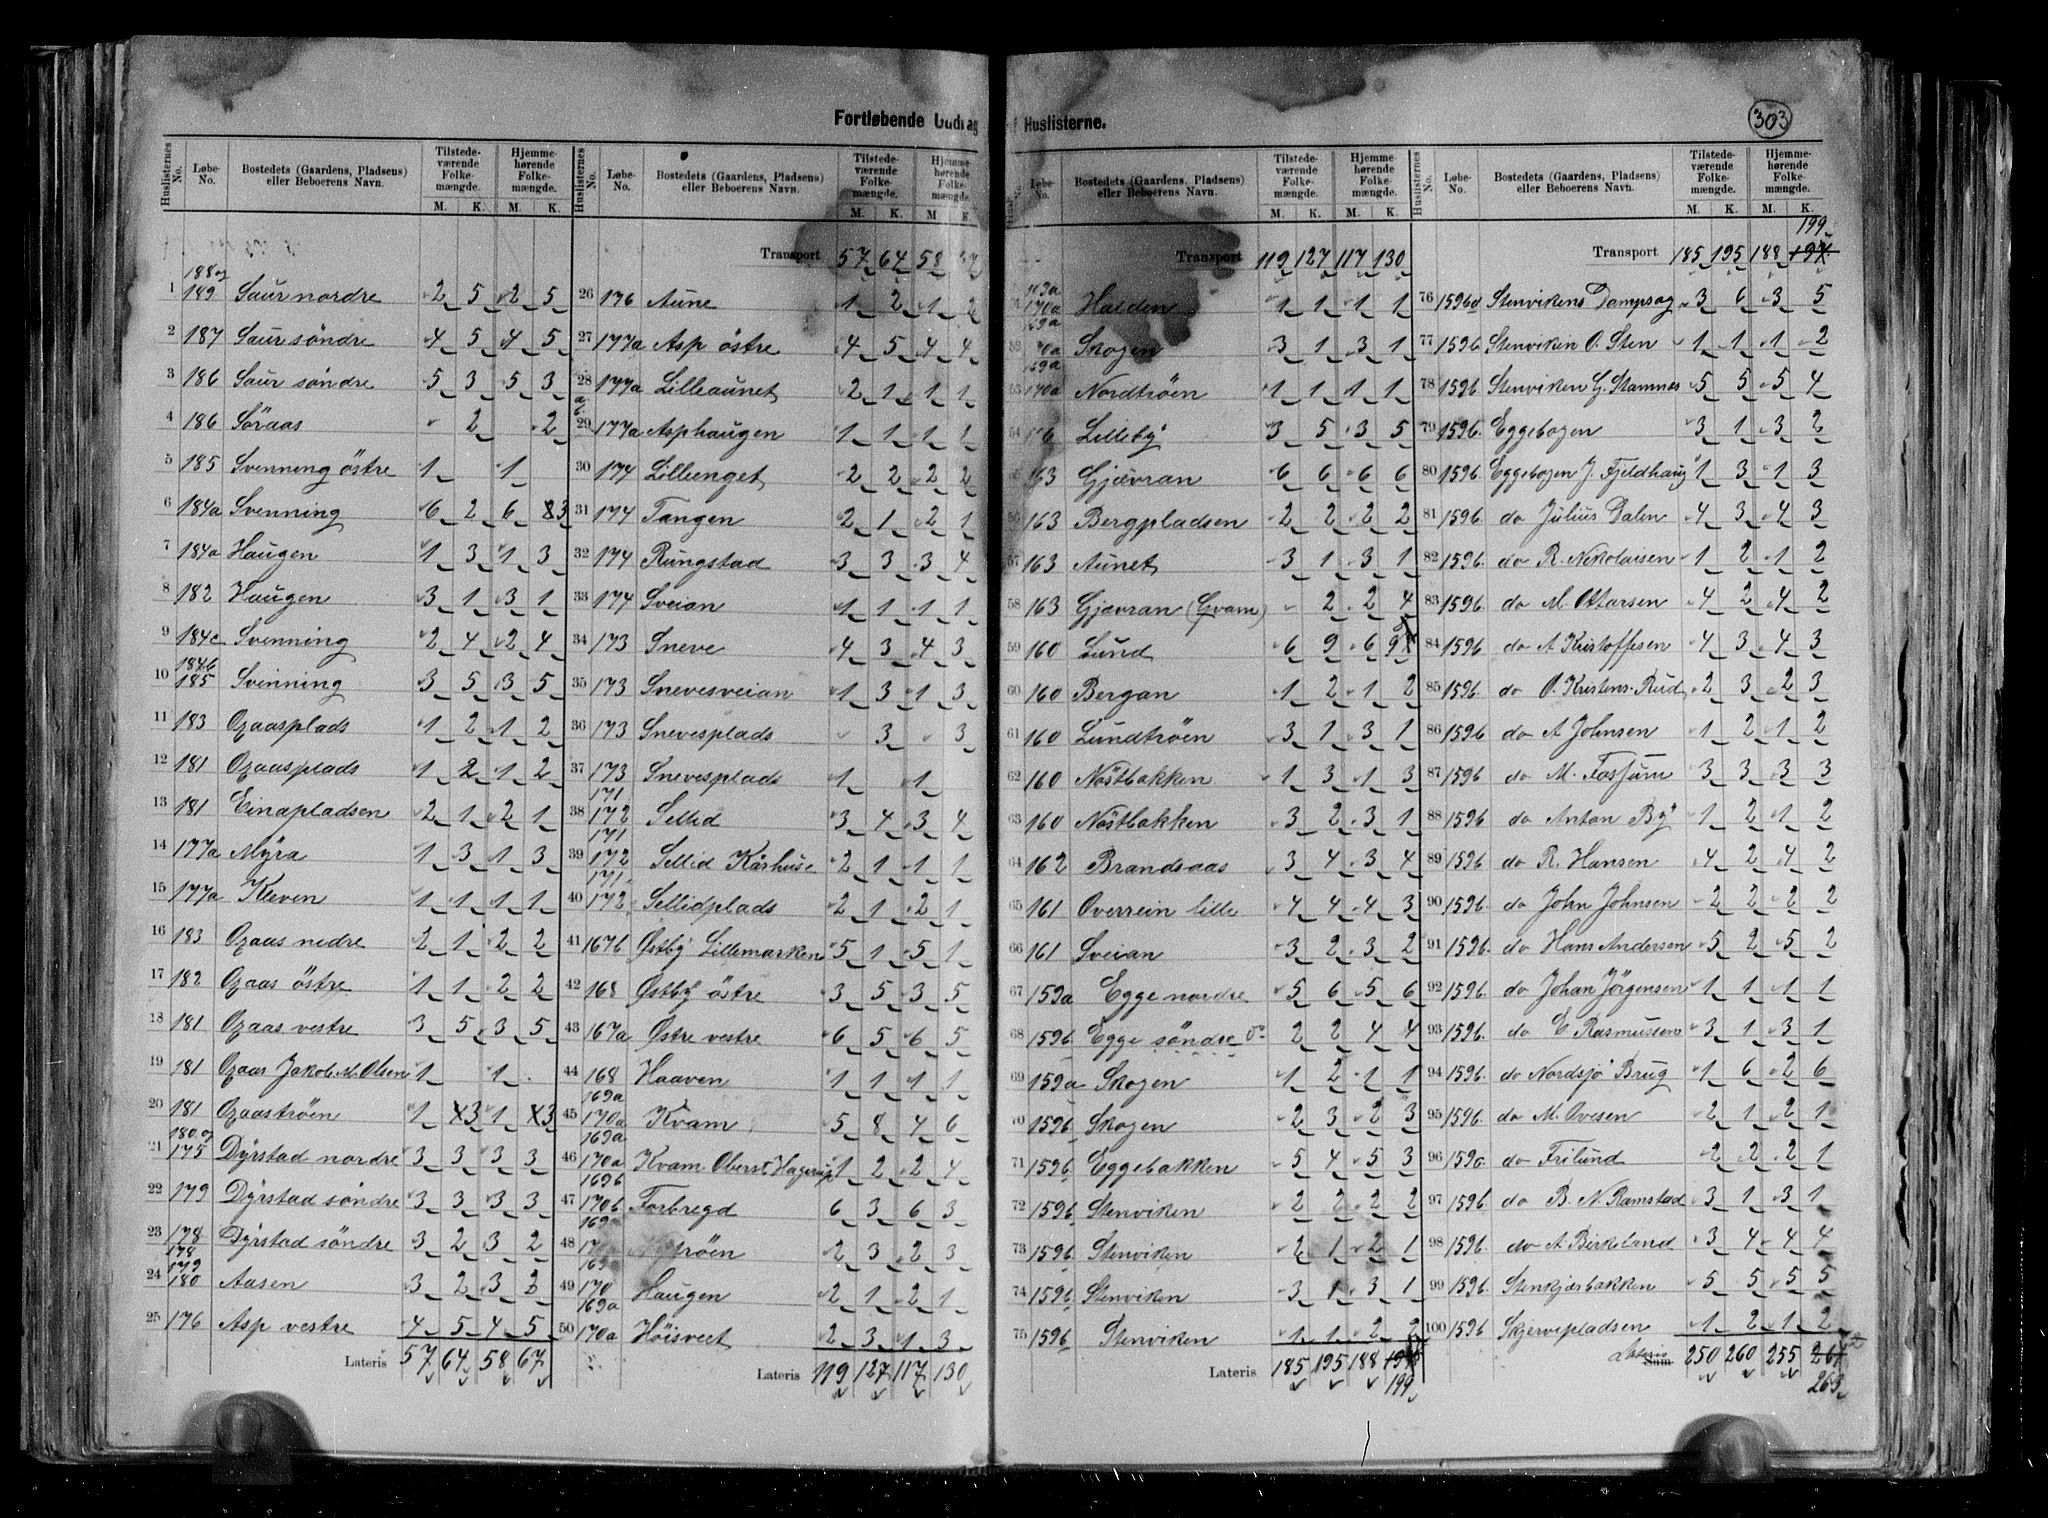 Fortløbende Uddrag af Huslisterne.
303
Huslisternes No. Løbe-No. Bostedets (Gaardens, Pladsens) eller Beboerens Navn. Tilstedeværende Folkemængde. M. K. Hjemmehørende Folkemængde. M. K.
1 188 og 189 Saur nordre 2 5 2 5
2 187 Saur söndre 4 5 4 5
3 186 Saur söndre 5 3 5 3
4 186 Söraas 2 2
5 185 Svenning östre 1 1
6 184a Svenning 6 2 6 3
7 184a Haugen 1 3 1 3
8 182 Haugen 3 1 3 1
9 184c Svenning 2 4 2 4
10 184b 185 Svenning 3 5 3 5
11 183 Ogaasplads 1 2 1 2
12 181 Ogaasplads 1 2 1 2
13 181 Einapladsen 2 1 2 1
14 177a Myra 1 3 1 3
15 177a Kleven 1 1 1 1
16 183 Ogaas nedre 2 1 2 2
17 182 Ogaas östre 1 1 2 2
18 181 Ogaas vestre 3 5 3 5
19 181 Ogaas Jakob M. Olsen 1 1
20 181 Ogaaströen 1 3 1 3
21 180 og 175 Dyrstad nordre 3 3 3 3
22 179 Dyrstad söndre 3 3 3 3
23 178 Dyrstad söndre 3 2 3 2
24 178 179 180 Aasen 3 2 3 2
25 176 Asp vestre 4 5 4 5
Lateris 57 64 58 67
Huslisternes No. Løbe-No. Bostedets (Gaardens, Pladsens) eller Beboerens Navn. Tilstedeværende Folkemængde. M. K. Hjemmehørende Folkemængde. M. K.
Transport 57 64 58 67
26 176 Aune 1 2 1 2
27 177a Asp östre 4 5 4 4
28 177a Lilleaunet 2 1 1 1
29 177a Asphaugen 1 1 1 1
30 174 Lillenget 2 2 2 2
31 174 Tangen 2 1 2 1
32 174 Rungstad 3 3 3 4
33 174 Sveian 1 1 1 1
34 173 Sneve 4 3 4 3
35 173 Snevesveian 1 3 1 3
36 173 Snevesplads 3 3
37 173 Snevesplads 1 1
38 171 172 Sellid 3 4 3 4
39 171 172 Sellid Kårhus 2 1 1 1
40 171 172 Sellidplads 2 1 2 1
41 167b Østby Lillemarken 5 1 5 1
42 168 Østby östre 3 5 3 5
43 167a Østre vestre 6 5 6 5
44 168 Haaven 1 1 1 1
45 169a 170a Kvam 5 8 4 6
46 169a 170a Kvam Oberst Hagerup 1 2 2 4
47 169b 170b Forbregd 6 3 6 3
48 2 3 2 3
49 170 Haugen 2 1 2 1
50 169a 170a Höisveet 2 3 1 3
Lateris 119 127 117 130
Løbe-No. Bostedets (Gaardens, Pladsens) eller Beboerens Navn. Tilstedeværende Folkemængde. M. K. Hjemmehørende Folkemængde. M. K.
Transport 119 127 117 130
169a 170a Halden 1 1 1 1
169a 70a Skogen 3 1 3 1
53 169a 170a Nordtröen 1 1 1 1
54 Lilleby 3 5 3 5
163 Gjævran 6 6 6 6
56 163 Bergpladsen 2 2 2 2
57 163 Aunet 3 1 3 1
58 163 Gjævran (Gvam) 2 2 4
59 160 Lund 6 9 6 9
60 160 Bergan 1 2 1 2
61 160 Lundtröen 3 1 3 1
62 160 Nöstbakken 1 3 1 3
63 160 Nöstbakken 3 2 3 1
64 162 Brandsaas 3 4 3 4
65 161 Overrein lille 4 4 4 3
66 161 Sveian 3 2 3 2
67 159a Egge nordre 5 6 5 6
68 159b Egge söndre 2 2 4 4
69 159a Skogen 1 2 1 1
70 159b Skogen 2 3 2 3
71 159b Eggebakken 5 4 5 3
72 159b Stenviken 2 2 2 2
73 159b Stenviken 2 1 2 1
74 159b Stenviken 3 1 3 1
75 159b Stenviken 1 1 2 2
Lateris 185 195 188 199
Huslisternes No. Løbe-No. Bostedets (Gaardens, Pladsens) eller Beboerens Navn. Tilstedeværende Folkemængde. M. K. Hjemmehørende Folkemængde. M. K.
199
Transport 185 195 188 197
76 159b Stenvikens Dampsag 3 6 3 5
77 159b Stenviken O. Sten 1 1 1 2
78 159b Stenviken G. Stamnes 5 5 5 4
79 159b. Eggebogen 3 1 3 2
80 159b. Eggebogen J. Fjeldhaug 1 3 1 3
81 159b. do Julius Dalen 4 3 4 3
82 159b. do R. Nikolaisen 1 2 1 2
83 159b. do M. Ottarsen 4 2 4 2
84 159b do A Kristoffesen 4 3 4 3
85 159b. do O. Kristens. Rud 2 3 2 3
86 159b do A Johnsen 1 2 1 2
87 159b do M. Fossum 3 3 3 3
88 159b do Anton By 1 2 1 2
89 159b do R. Hansen 4 2 4 2
90 159b. do John Johnsen 2 2 2 2
91 159b. do Hans Andersen 5 2 5 2
92 159b. do Johan Jörgensen 1 1 1 1
93 159b. do E Rasmussen 3 1 3 1
94 159b. do Nordsjö Brug 1 6 2 6
95 159b. do M. Ovesen 2 1 2 1
96 159b do Frilund 2 2 2 1
97 159b. do B. N. Ramstad 3 1 3 1
98 159b. do A. Birkeland 3 4 4 4
99 159b. Stenkjærbakken 5 5 5 5
100 159b Skjervepladsen 1 2 1 2
Lateris Sum 250 260 255 261
263